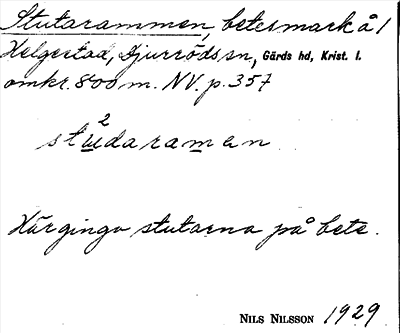 Stutarammen, betesmark å 1
Helgestad, Djurröds sn, Gärds hd, Krist. l.
omkr. 800 m. NV. p. 357
2
studaraman
Här gingo stutarna på bete.
NILS NILSSON 1929